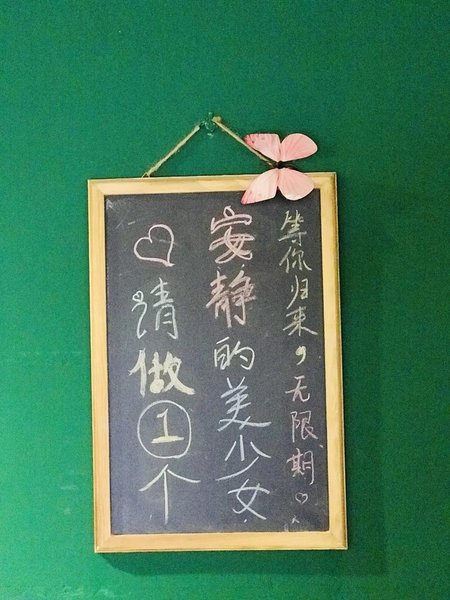 等你归来，无限期♡
安静的美少女
♡请做①个